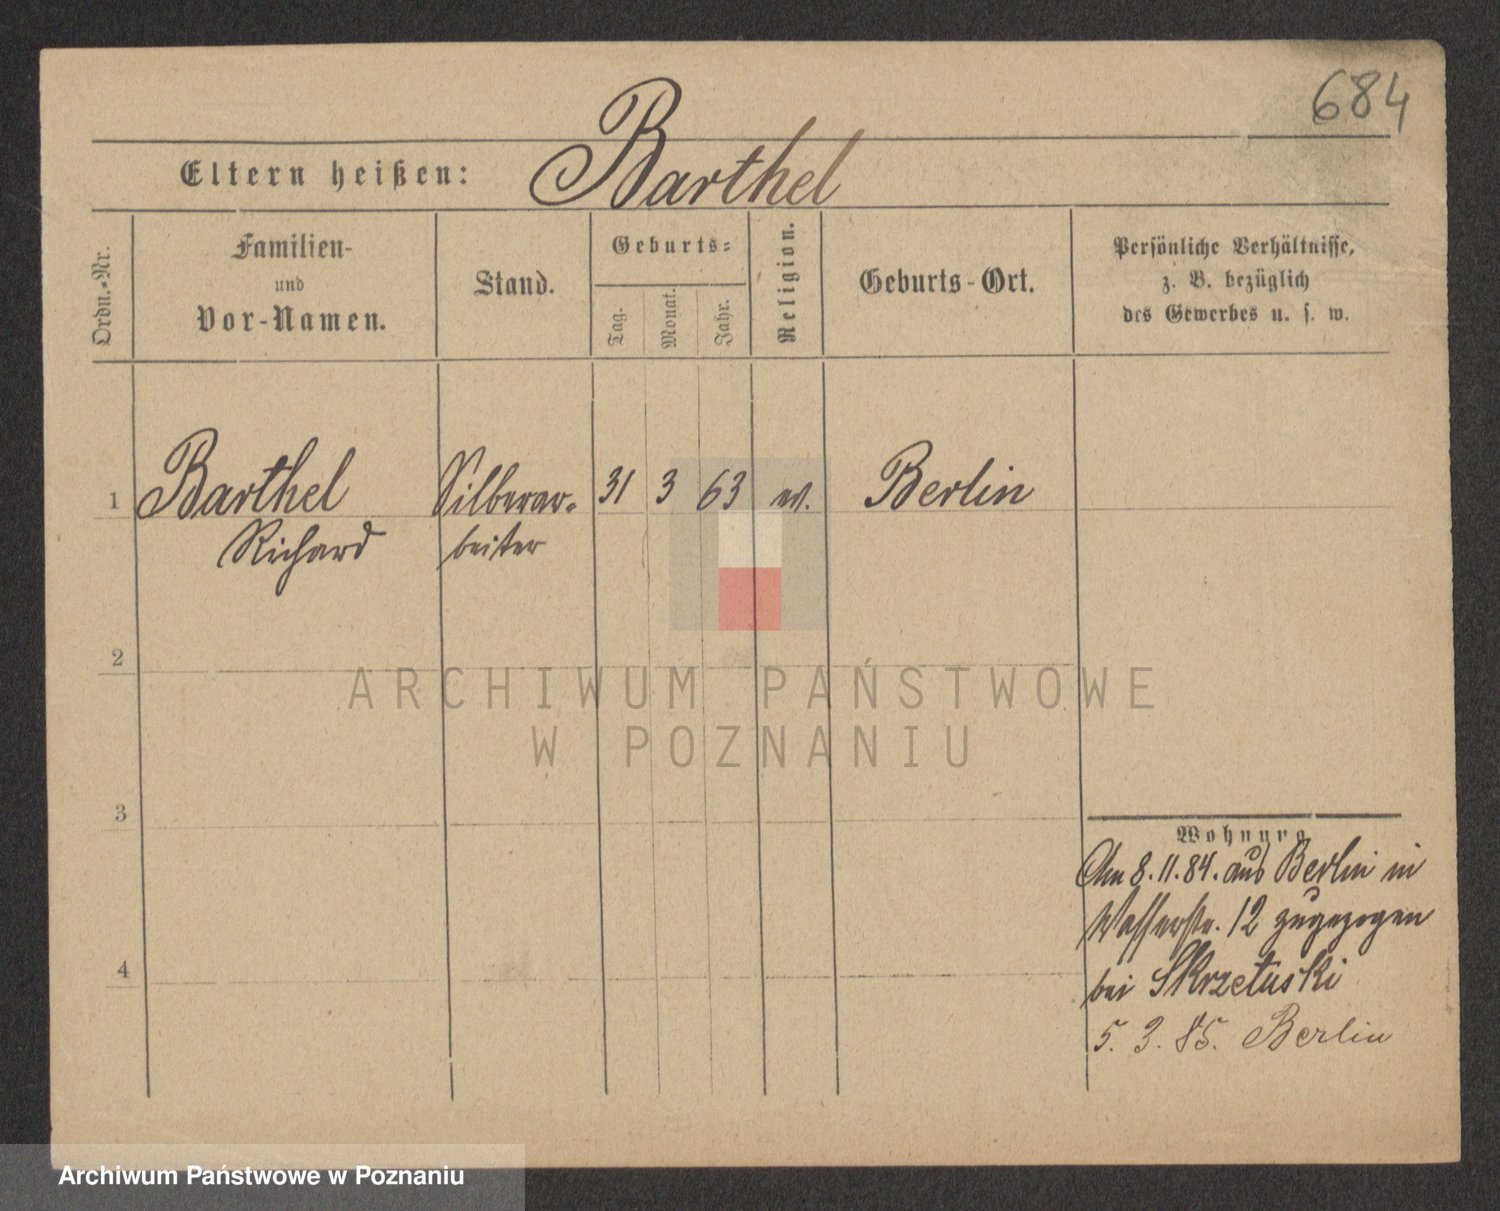 684
Eltern heißen: Barthel
Ordn.-Nr.
Familien-
und
Vor-Namen.
Stand.
Geburts-
Tag.
Monat.
Jahr.
Religion.
Geburts-Ort.
Persönliche Verhältnisse,
z. B. bezüglich
des Gewerbes u. s. w.
1 Barthel Silberar- 31 3 63 ev. Berlin
Richard beiter
2
ARCHIWUM PAŃSTWOWE
W POZNANIU
3
Wohnung
Am 8.11.84. aus Berlin in
Wasserstr. 12 zugezogen
4
bei Skrzetuski
5. 3. 85. Berlin
Archiwum Państwowe w Poznaniu